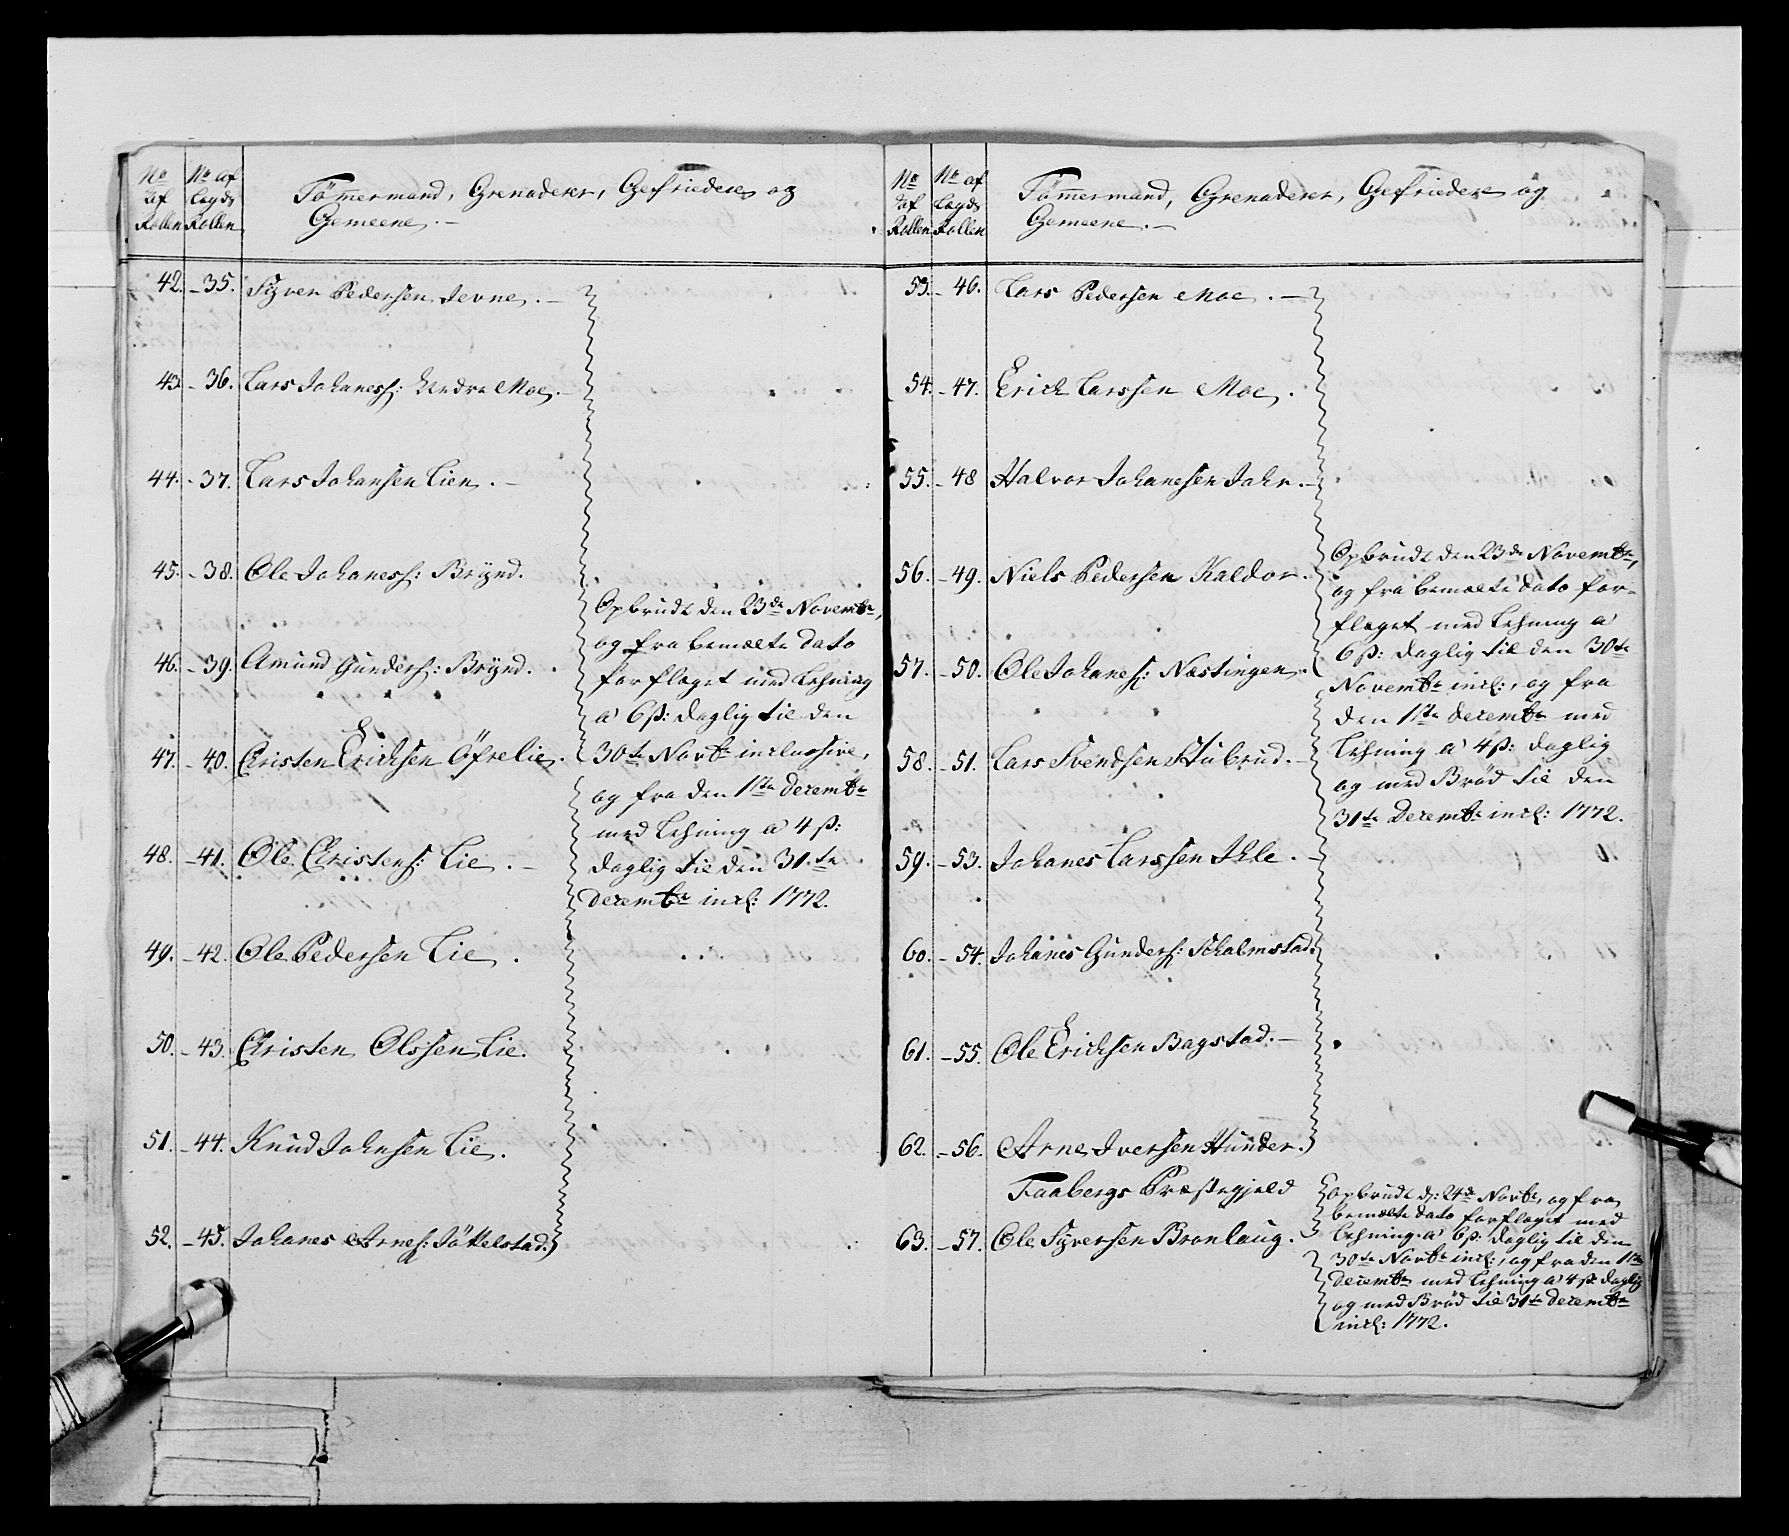 No af Rollen
No af Lægds Rollen
Tömmermænd, Grenaderer, Gefriedere og
Gemeene. —
42. – 35. Syver Pedersen Jevne. —
43. – 36. Lars Johaness: Nedre Moe. –
44. – 37. Lars Johansen Lien. –
45. – 38. Ole Johaness: Brÿnd.
46. – 39. Amund Gunders: Brÿnd.
47. – 40. Christen Ericksen Öfrelie.
48. – 41. Ole Christens: Lie. –
49. – 42. Ole Pedersen Lie.
50. – 43. Christen Olssen Lie.
51. – 44. Knud Johnsen Lie.
52. – 45. Johanes Arnes: Jökelstad.
Opbrudt den 23de Novembr,
og fra bemælte Dato
forfleget med Lehning
a 6 ß: daglig til den
30te Novbr inclussive,
og fra den 1ste Decembr
med Lehning a 4 ß:
daglig til den 31.te
Decembr incl: 1772.
No af Rollen
No af Lægds Rollen
Tömmermænd, Grenaderer, Gefriedere og
Gemeene. —
53. – 46. Lars Pedersen Moe. —
54. – 47. Erich Larssen Moe.
55. – 48 Halvor Johanesen Jahr. –
56. – 49. Niels Pedersen Kaldor.
57. – 50. Ole Johanes: Næstingen.
58. – 51. Lars Svendsen Stubrud. –
59. – 53. Johanes Larssen Ihle. –
60. – 54. Johanes Gunders: Skalmstad.
61. – 55. Ole Ericksen Bagstad. –
62. – 56. Arne Iversen Hunder.
Opbrudt den 23de Novembr,
og fra bemælte Dato for-
fleget med Lehning a
6 ß: daglig til den 30te
Novembr incl:, og fra
den 1ste Decembr med
Lehning a 4 ß: daglig
og med Brød til den
31te Decembr incl: 1772.
Faabergs Præstegjeld
63. – 57. Ole Syversen Bronlaug.
opbrudt d: 24de Novbr, og fra
bemælte Dato forfleget med
Lehning a 6 ß: daglig til den
30te Novbr incl:, og fra den 1ste
Decembr med Lehning a 4 ß daglig
og med Brød til 31te Decembr
incl: 1772.